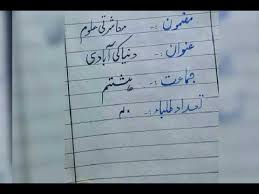 مضمون :- معاشرتی علوم
عنوان :- دنیا کی آبادی
جماعت :- ہشتم
تعداد طلباء :- ۴۰